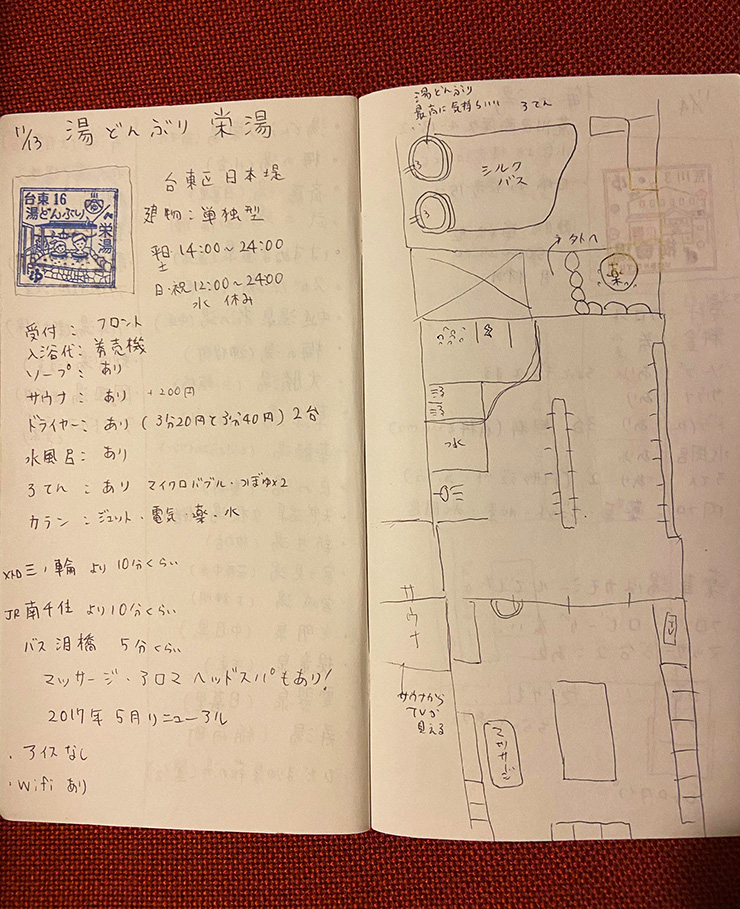 11/13 湯どんぶり 栄湯
台東16
湯どんぶり
栄湯
台東区日本堤
建物：単独型
平日 土 14:00〜24:00
日・祝 12:00〜24:00
水 休み
受付：フロント
入浴代：券売機
ソープ：あり
サウナ：あり +200円
ドライヤー：あり (3分20円と3分40円) 2台
水風呂：あり
ろてん：あり マイクロバブル・つぼゆ×2
カラン：ジェット・電気・薬・水
メトロ三ノ輪 より 10分くらい
JR南千住 より10分くらい
バス 泪橋 5分くらい
マッサージ・アロマ ヘッドスパもあり!
2017年 5月リニューアル
・アイスなし
・Wifi あり
湯どんぶり
最高に気持ちいい
ろてん
シルク
バス
外へ
薬
水
サウナ
TV
サウナから
TVが
見える
マッサージ